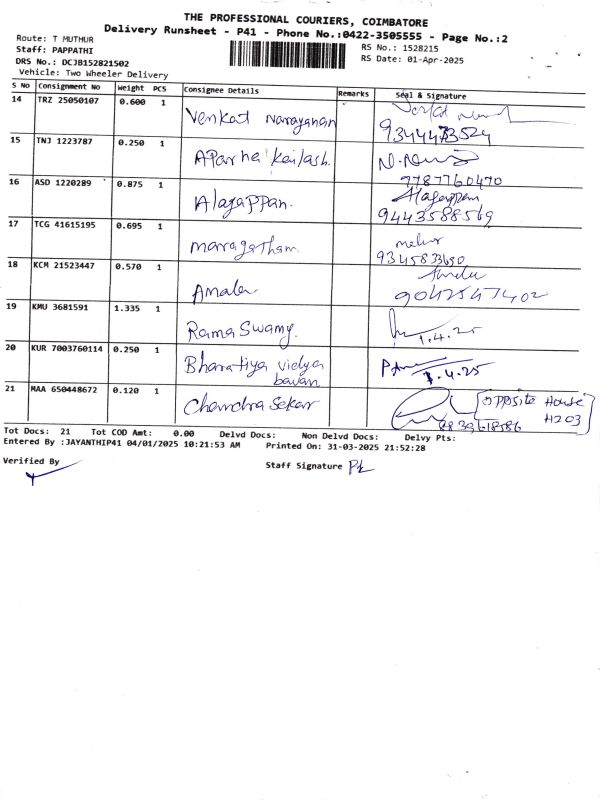 THE PROFESSIONAL COURIERS, COIMBATORE
Delivery Runsheet - P41 - Phone No.:0422-3505555 - Page No.:2
Route: T MUTHUR
RS No.: 1528215
Staff: PAPPATHI
RS Date: 01-Apr-2025
DRS No.: DCJB152821502
Vehicle: Two Wheeler Delivery
S No Consignment No Weight PCS Consignee Details Remarks Seal & Signature
14 TRZ 25050107 0.600 1 Venkat Narayanan
15 TNJ 1223787 0.250 1 Aparna Kailash.
9787760470
16 ASD 1220289 0.875 1 Alagappan. Alagappan
9443588569
17 TCG 41615195 0.695 1 maragatham.
9345833690
18 KCM 21523447 0.570 1 Amala
9042547402
19 KMU 3681591 1.335 1 Rama Swamy. 1.4.25
20 KUR 7003760114 0.250 1 Bharatiya vidya bavan 1.4.25
21 MAA 650448672 0.120 1 Chandra Sekar Opposite House
H203
Tot Docs: 21 Tot COD Amt: 0.00 Delvd Docs: Non Delvd Docs: Delvy Pts:
Entered By :JAYANTHIP41 04/01/2025 10:21:53 AM Printed On: 31-03-2025 21:52:28
Verified By
Staff Signature